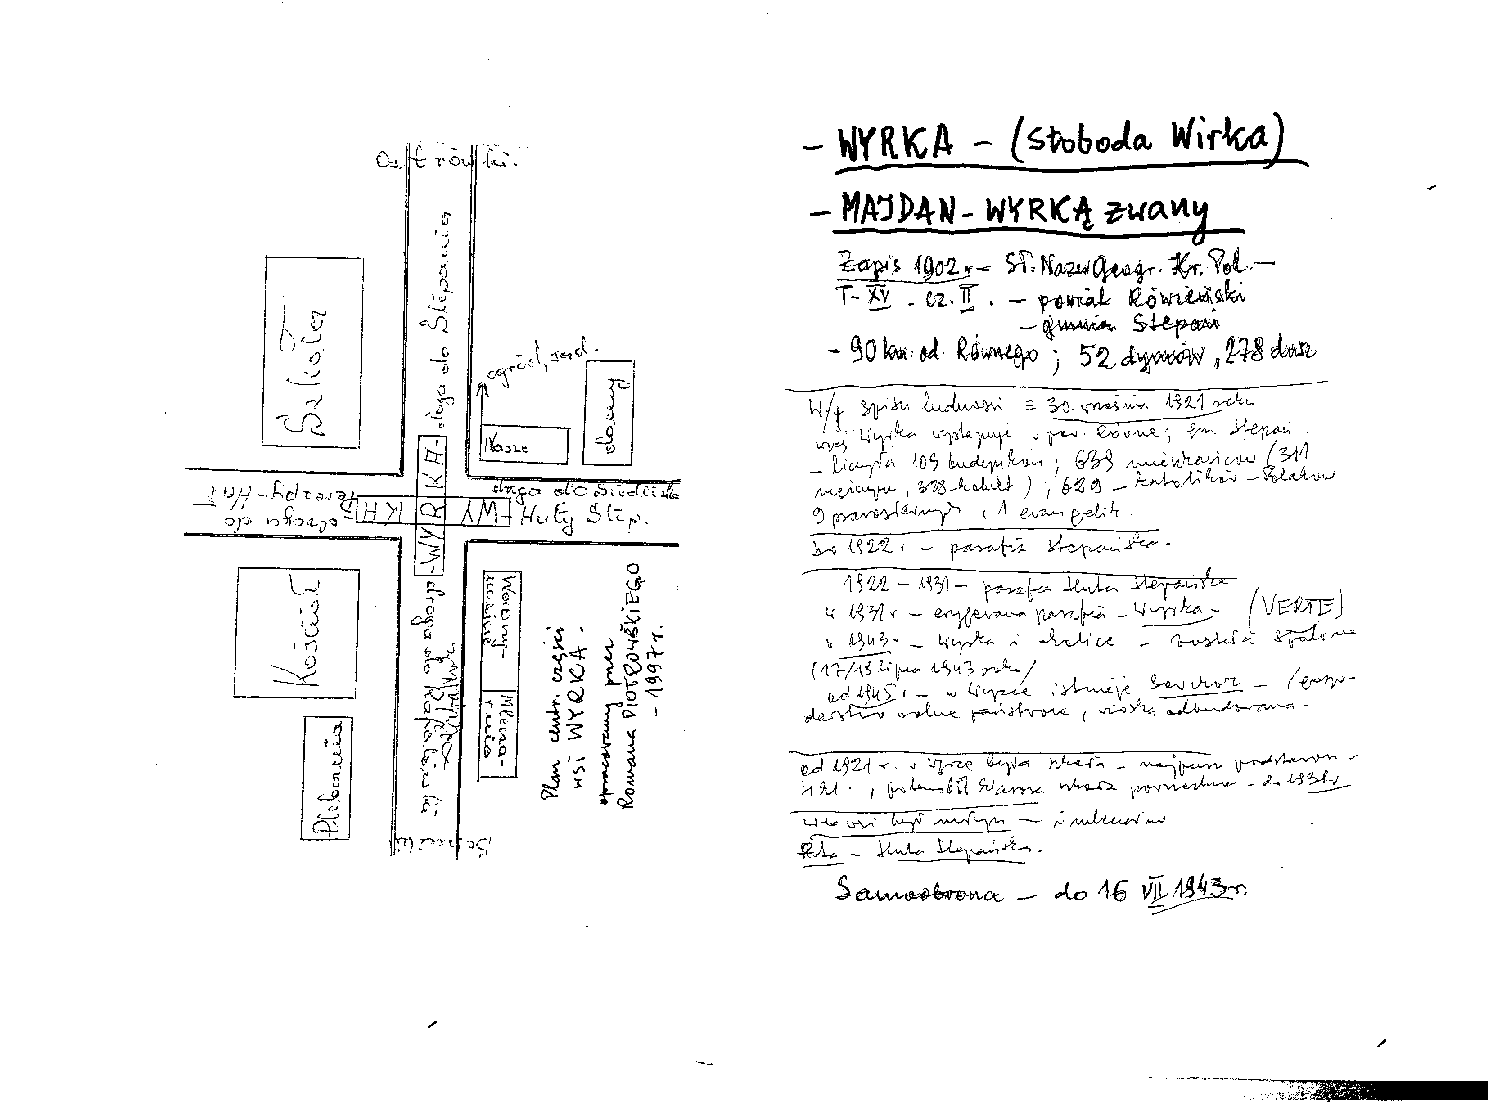 Ostrówki.
Szkoła
droga do Stepania
ogród, sad.
Nasze
domy
droga do Siedliska
Huty Step.
droga do
WYRKA
WYRKA
Kościół
droga do
Plebania
Mleczarnia
Plan centr. części
wsi WYRKA.
opracowany przez
Romana PIOTROWSKIEGO
- 1997 r.
- WYRKA - (Słoboda Wirka)
- MAJDAN - WYRKĄ zwany
Zapis 1902 r - Sł. Nazw Geogr. Kr. Pol. -
T - XV - cz. II. - powiat Rówieński
- gmina Stepań
- 90 km. od Równego ; 52 dymów, 278 dusz
W/g spisu ludności z 30. września 1921 roku
wieś Wyrka występuje w pow. Równe; gm. Stepań.
- liczyła 109 budynków; 639 mieszkańców (311
mężczyzn, 328 - kobiet) ; 629 - katolików - Polaków
9 prawosławnych, 1 evangelik.
Do 1922 r - parafia Stepańska.
1922 - 1931 - parafia Huta Stepańska
w 1931 r - erygowana parafia - Wyrka - (VERTE)
w 1943 - Wyrka i okolice - została spalona
(17/18 lipca 1943 roku/
od 1945 r. - w Wyrce istnieje Sowchoz - (gospo-
darstwo rolne państwowe, wioska odbudowana.
od 1921 r. w Wyrce była szkoła -
- do 1938 r
we wsi był
- Huta Stepańska.
Samoobrona - do 16 VII 1943 r.